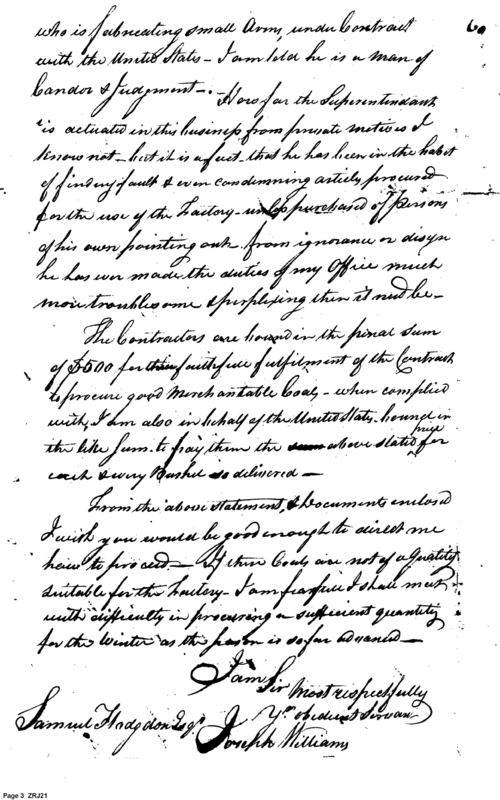 60
who is fabricating small Arms, under Contract
with the United States - I am told he is a man of
Candor & Judgment -. How far the Superintendant
is actuated in this business from private motives I
know not - but it is a fact, that he has been in the habit
of finding fault & even condemning articles procured
for the use of the Factory - unless purchased of persons
of his own pointing out - from ignorance or design
he has ever made the duties of my Office much
more troublesome & perplexing then it need be -
The Contractors are bound in the penal sum
of $500 for their faithfull fulfilment of the Contract
to procure good Merchantable Coals - when complied
with, I am also in behalf of the United States bound in
the like Sum to pay them the above stated price for
each & every Bushel so delivered -
From the above statement, & Documents enclosed
I wish you would be good enough to direct me
how to proceed - If these Coals are not of a Quality
suitable for the Factory - I am fearfull I shall meet
with difficulty in procuring a sufficient quantity
for the Winter as the season is so far advanced -
I am Sir
Most respectfully
Yr obedient Servant
Samuel Hodgdon Esqr Joseph Williams
Page 3 ZRJ21